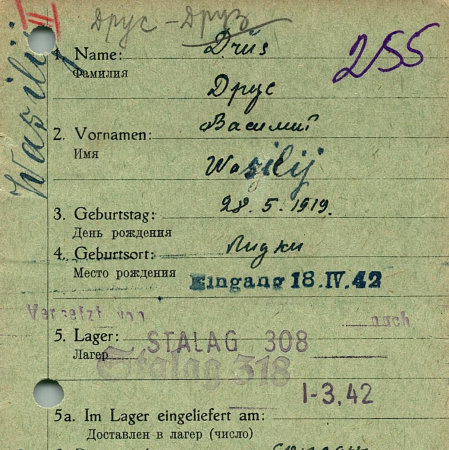 Друс - Друз
III
Wasilij
255
1. Name: Drus
Фамилия
Друс
2. Vornamen: Василий
Имя
Wasilij
3. Geburtstag: 28.5.1919.
День рождения
4. Geburtsort: Лидки
Место рождения
Eingang 18.IV.42
Versetzt von nach
5. Lager: STALAG 308
Лагер
Stalag 318
1-3.42
5a. Im Lager eingeliefert am:
Доставлен в лагер (число)